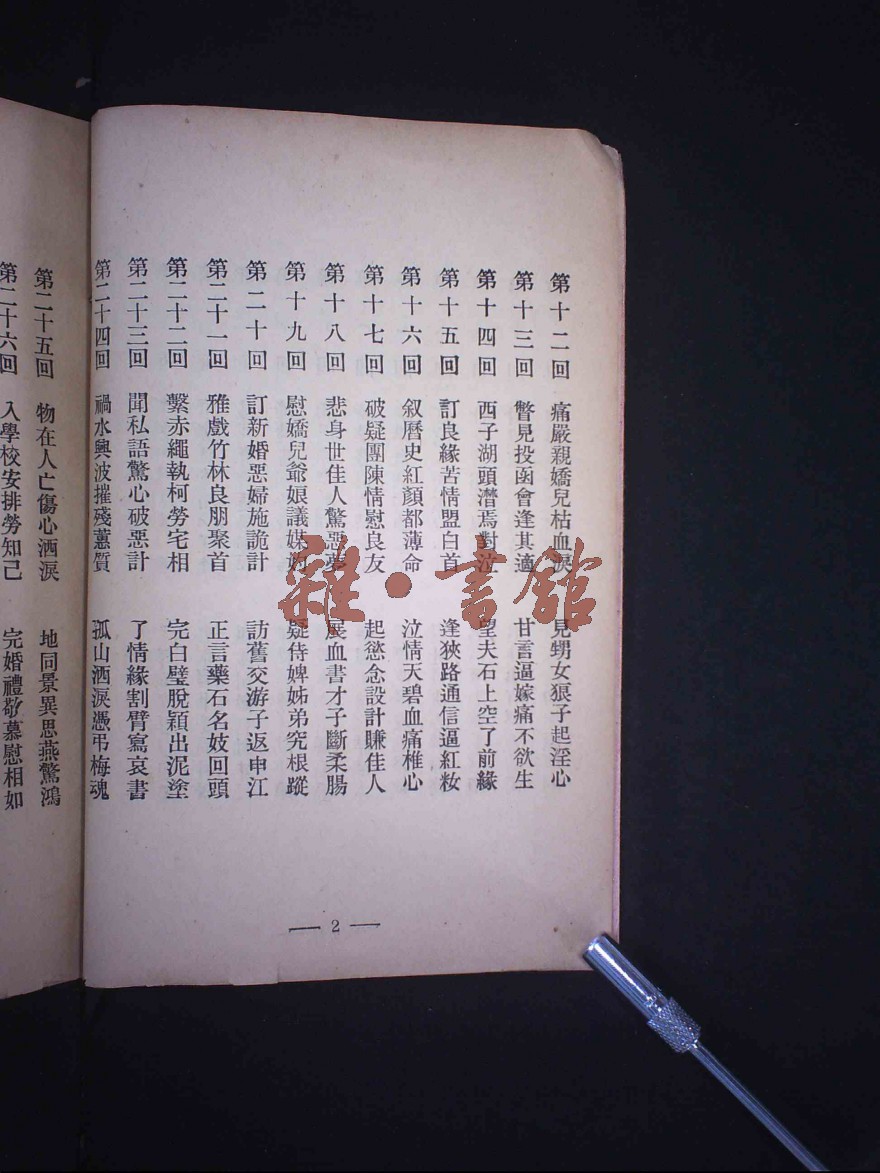 第十二回 痛嚴親嬌兒枯血淚 見甥女狠子起淫心
第十三回 瞥見投函會逢其適 甘言逼嫁痛不欲生
第十四回 西子湖頭潸焉對泣 望夫石上空了前緣
第十五回 訂良緣苦情盟白首 逢狹路通信逼紅妝
第十六回 叙曆史紅顏都薄命 泣情天碧血痛椎心
第十七回 破疑團陳情慰良友 起慾念設計賺佳人
第十八回 悲身世佳人驚惡夢 展血書才子斷柔腸
第十九回 慰嬌兒爺娘議媒妁 疑侍婢姊弟究根蹤
第二十回 訂新婚惡婦施詭計 訪舊交游子返申江
第二十一回 雅戲竹林良朋聚首 正言藥石名妓回頭
第二十二回 繫赤繩執柯勞宅相 完白璧脫穎出泥塗
第二十三回 聞私語驚心破惡計 了情緣割臂寫哀書
第二十四回 禍水興波摧殘蕙質 孤山洒淚憑弔梅魂
2
第二十五回 物在人亡傷心洒淚 地同景異思燕驚鴻
第二十六回 入學校安排勞知己 完婚禮敬慕慰相如
雜·書館